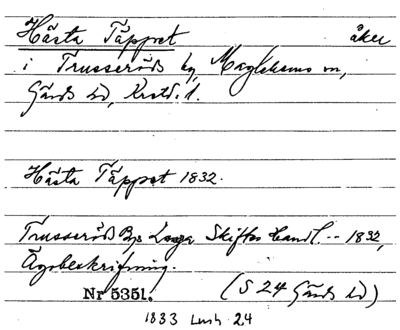 Hästa Täppet åker
i Trusseröds by, Maglehems sn,
Gärds hd, Krstd. l.
Hästa Täppet 1832.
Trusseröds Bys Laga Skiftes Handl. -- 1832,
Ägobeskrifning.
Nr 5351. (S 24 Gärds hd)
1833 24